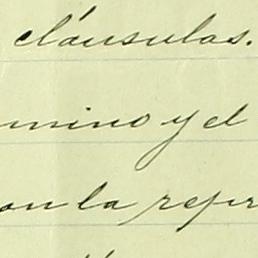 cláusulas.
mino y el
on la refir